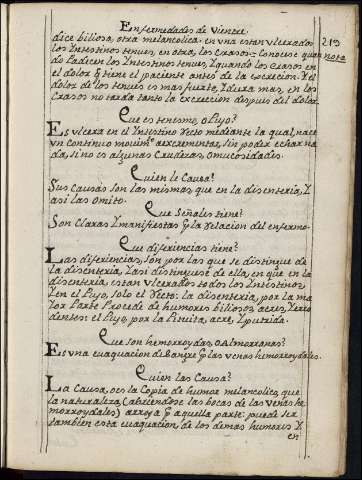 Enfermedades de Vientre
219
dice biliosa, otra melancolica: en vna estan vlcerados
los Intestinos tenues, en otra, los Crasos. Conocese quan
nota
do Padecen los Intestinos tenues, I quando los Crasos en
el dolor q tiene el paciente antes de la excrecion. I el
dolor de los tenues es mas fuerte, I dura mas, en los
Crasos no tarda tanto la excrecion despues del dolor.
Que es tenesmo, o Pujo?
Es vlcera en el Intestino Recto mediante la qual, nace
vn continuo movim.to a excrementar, sin poder echar na
da, si no es algunas Crudezas, o mucosidades.
Quien le Causa?
Sus Causas son las mismas que en la disenteria, I
asi las omito.
Que Señales tiene?
Son Claras I manifiestas p la relacion del enfermo.
Que diferiencias tiene?
Las diferiencias, son por las que se distingue de
la disenteria, I asi distinguese de ella, en que en la
disenteria, estan vlcerados todos los Intestinos,
I en el Pujo, solo el Recto: la disenteria, por la ma
ior Parte Procede de humores biliosos acres, I ero
dentes: el Pujo, por la Pituita, acre, I putrida.
Que son hemorroydas, o Almorranas?
Es vna euaquacion de Sangre p las venas hemorroydales.
Quien las Causa?
La Causa, o es la Copia de humor melancolico, que
la naturaleza, (abriendose las bocas de las venas he
morroydales) arroja p aquella parte: puede ser
tambien esta euaquacion, de los demas humores I
en